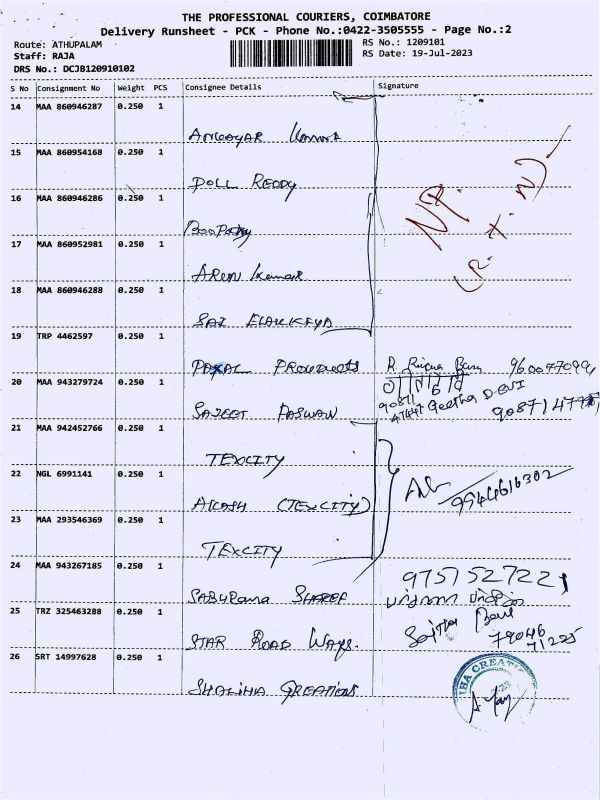 THE PROFESSIONAL COURIERS, COIMBATORE
Delivery Runsheet - PCK - Phone No.:0422-3505555 - Page No.:2
Route: ATHUPALAM
RS No.: 1209101
Staff: RAJA
RS Date: 19-Jul-2023
DRS No.: DCJB120910102
S No Consignment No Weight PCS Consignee Details Signature
14 MAA 860946287 0.250 1
Kanna
15 MAA 860954168 0.250 1
DOLL REDDY
16 MAA 860946286 0.250 1
BooPathy
17 MAA 860952981 0.250 1
ARUN Kumar
18 MAA 860946288 0.250 1
SAI
19 TRP 4462597 0.250 1
PRODUCTS R.
20 MAA 943279724 0.250 1
SAJEET PASWAN Geetha DEVI
21 MAA 942452766 0.250 1
TEXCITY
22 NGL 6991141 0.250 1
AKASH (TEXCITY) 9944616302
23 MAA 293546369 0.250 1
TEXCITY
24 MAA 943267185 0.250 1
9751527221
25 TRZ 325463288 0.250 1
STAR ROAD WAYS. 79046
71225
26 SRT 14997628 0.250 1
CREATIONS